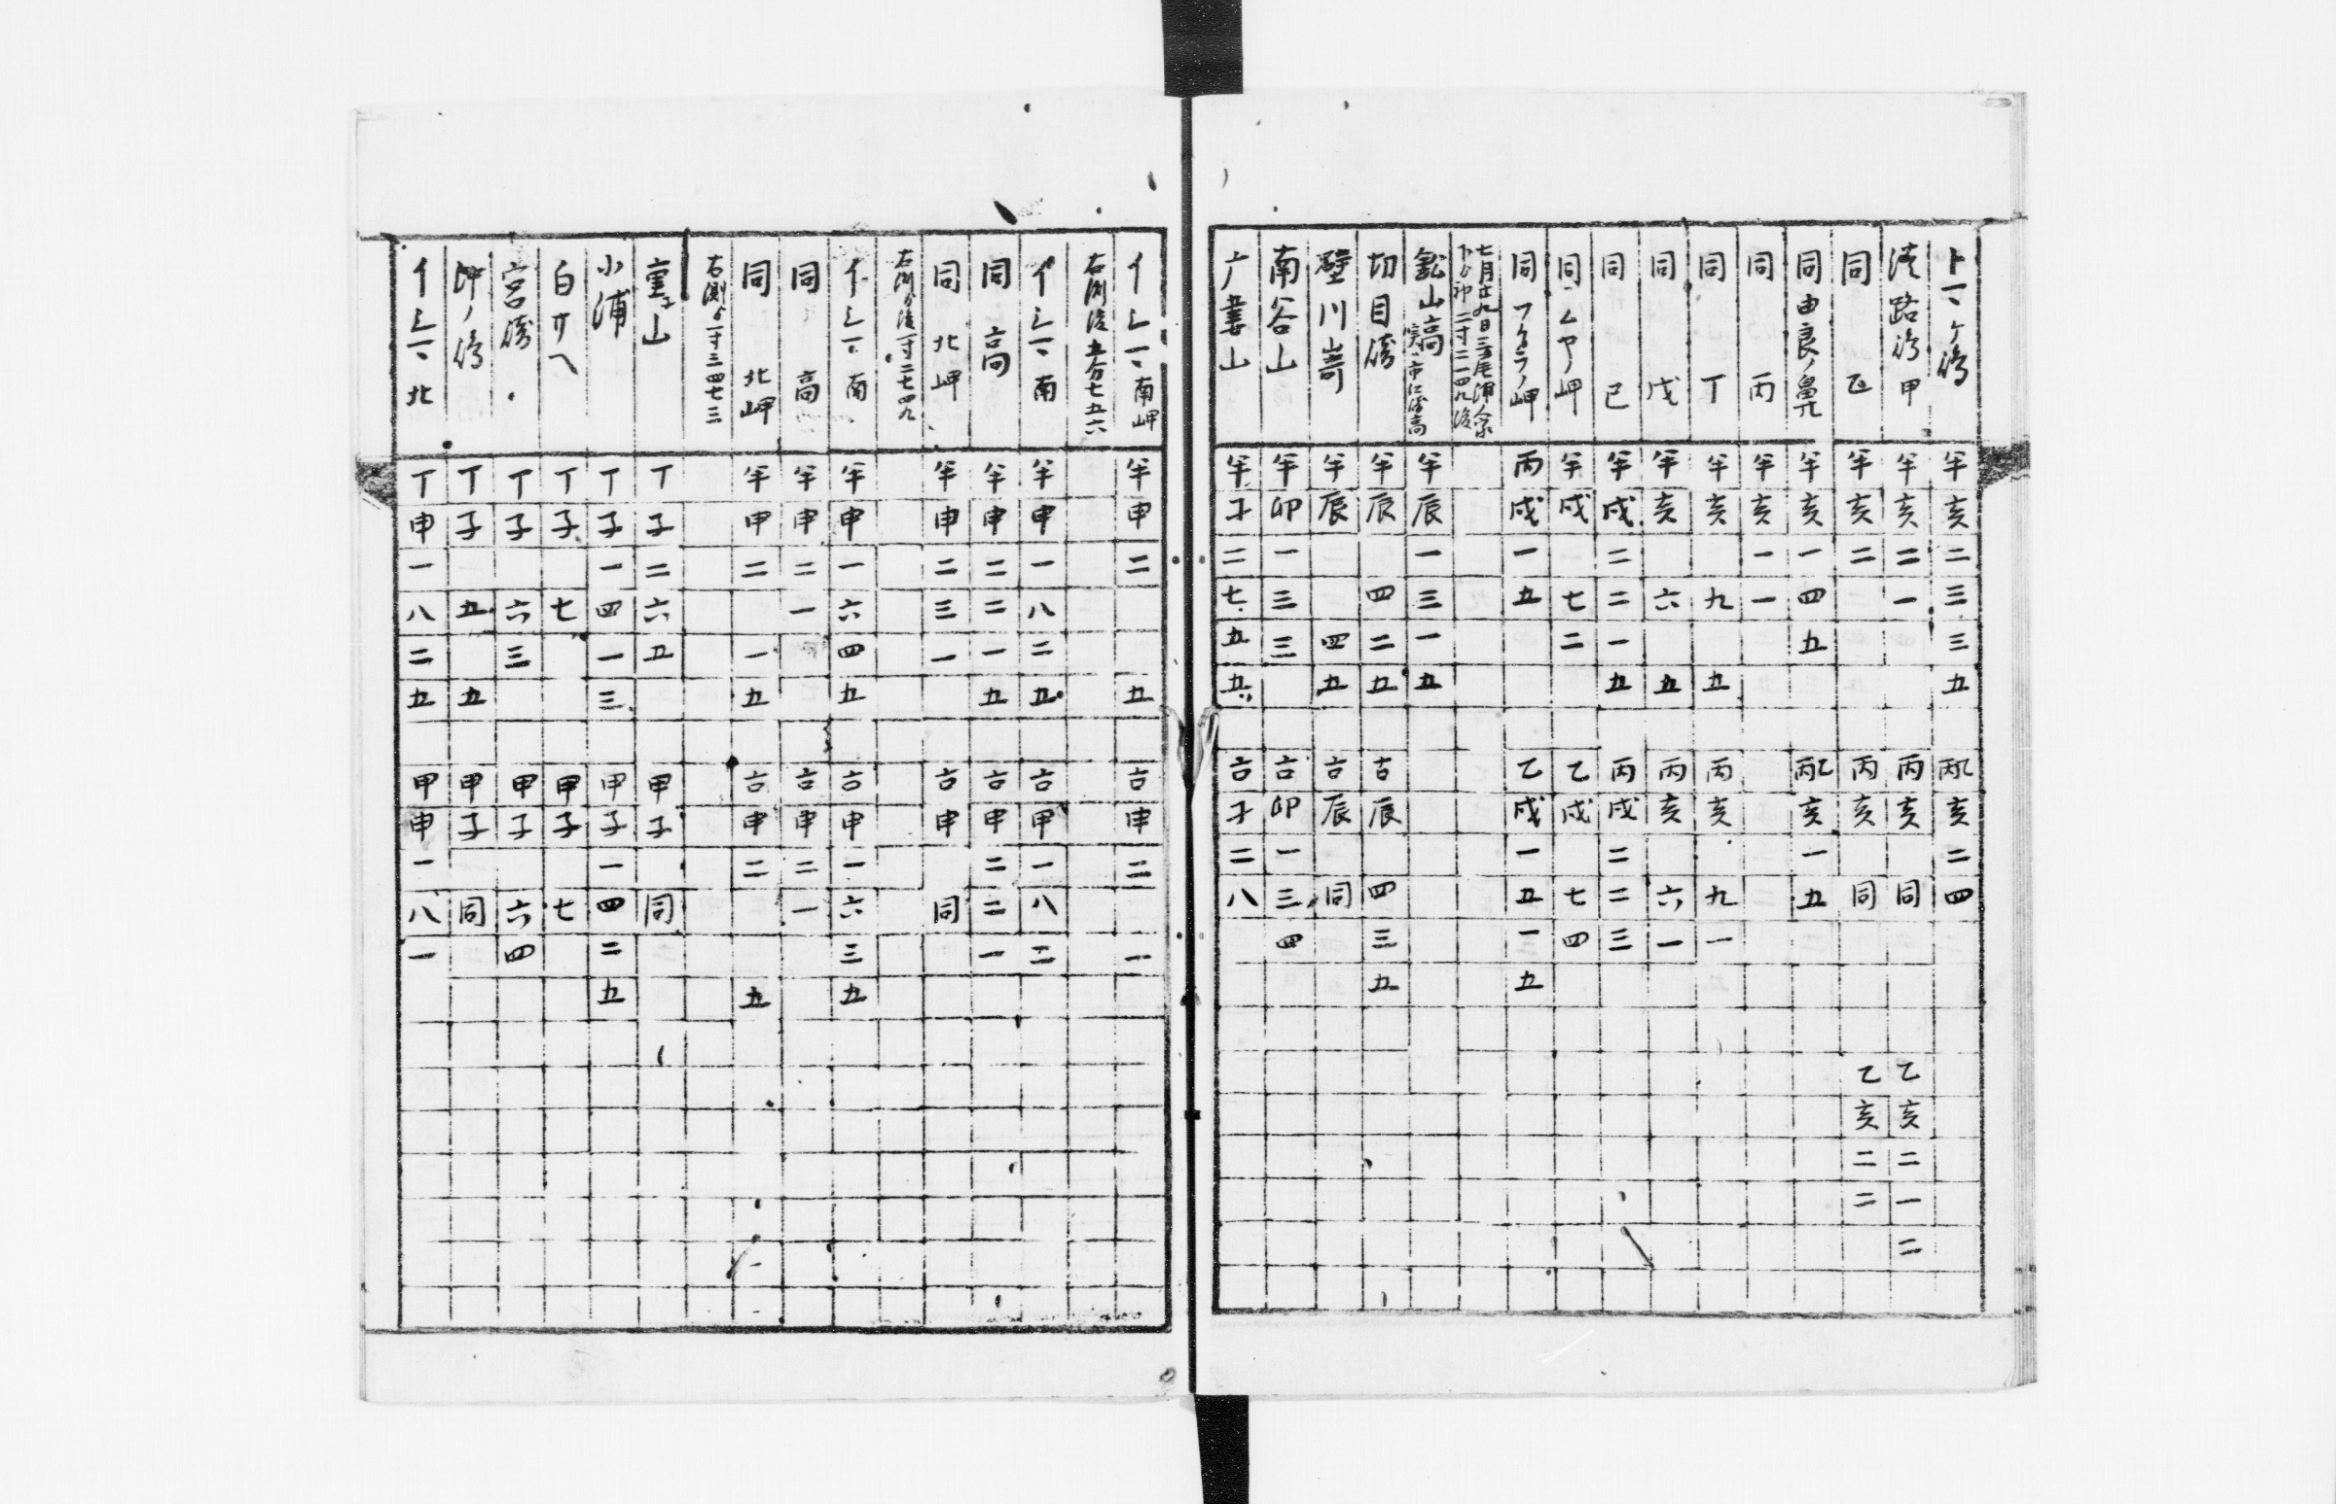 トヽケ島 半亥二三三五 丙乙亥二四
淡路島 甲 半亥二一 丙亥 同 乙亥二一二
同 乙 半亥二 丙亥 同 乙亥二二
同 由良ノ鼻 半亥一四五 丙乙亥一五
同 丙 半亥一一
同 丁 半亥九五 丙亥九一
同 戊 半亥六五 丙亥六一
同 己 半戌二二一五 丙戌二二三
同 ムヤノ岬 半戌七二 乙戌七四
同 フクラノ岬 丙戌一五 乙戌一五一五
七月廿九日
二寸二一四九後
山高 半辰一三一五
切目崎 半辰四二五 吉辰四三五
壁川嵜 半辰四五 吉辰 同
南谷山 半卯一三三 吉卯一三四
半子二七五五 吉子二八
イシマ 南岬 半申二五 吉申二一
右測後五分七五六
イシマ 南 半申一八二五 吉申一八二
同 高 半申二二一五 吉申二二一
同 北岬 半申二三一 吉申 同
右測ゟ後一寸二七四九
イシマ 南 半申一六四五 吉申一六三五
同 高 半申二一 吉申二一
同 北岬 半申二一五 吉申二五
右測ゟ一寸三四七三
山 丁子二六五 甲子 同
小浦 丁子一四一三 甲子一四二五
白サヘ 丁子七 甲子七
宮崎 丁子六三 甲子六四
沖ノ島 丁子五五 甲子 同
イシマ 北 丁申一八二五 甲申一八一